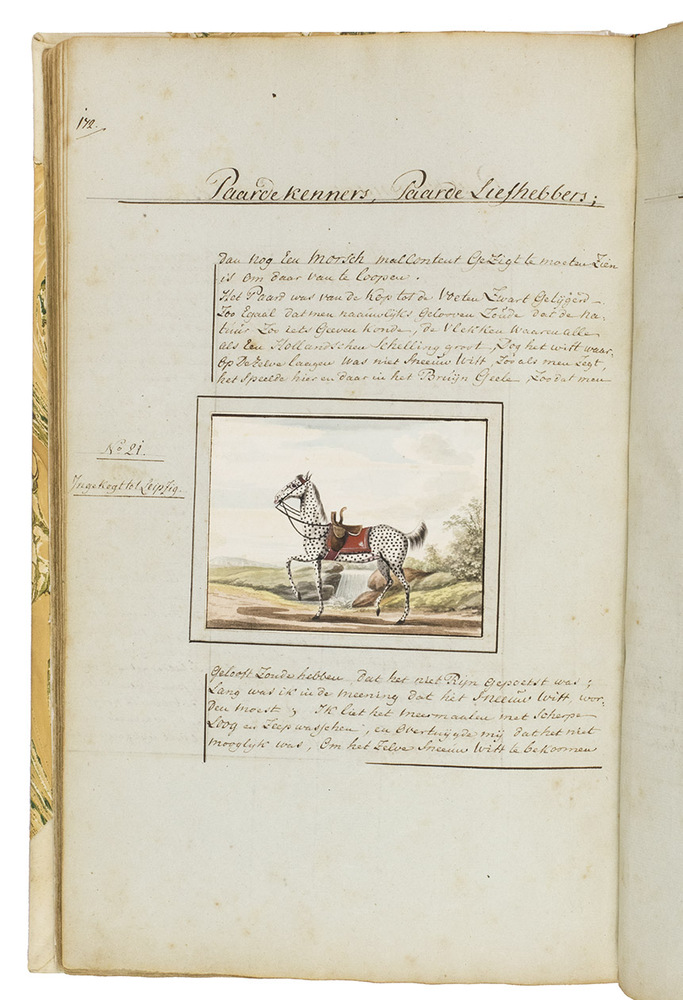 172.
Paarde kenners, Paarde Liefhebbers;
dan nog Een Morsch mallontent Gezigt te moeten Zien
is om daar van te loopen.
Het Paard was van de Kop tot de Voeten Zwart Getijgerd
Zoo Egaal dat men naauwlijks gelooven Zoude dat de na-
tuur Zoo iets Geeven Konde, de Vlekken Waaren alle
als Een Hollandschen Schelling groot, Dog het witt waar
op Dezelve laagen Was niet Sneeuw Witt, Zoo als men Zegt,
het Speelde hier en daar in het Bruijn Geele, Zoo dat men
No 21.
Ingekogt tot Leipzig.
Gelooft Zoude hebben, dat het niet Rijn Gepoetst was;
Lang was ik in de meening dat het Sneeuw Witt wor-
den moest; Ik liet het meermaalen met Scherpe
Loog en Zeep wasschen, en Overtuijgde mij dat het niet
mooglyk was, Om het Zelve Sneeuw Witt te bekoomen